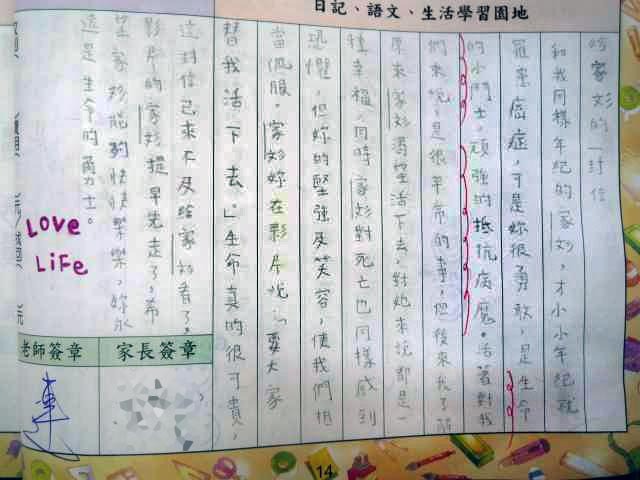 日記、語文、生活學習園地
給家妙的一封信
和我同樣年紀的家妙，才小小年紀就
罹患癌症，可是妳很勇敢，是生命
的小鬥士，頑強的抵抗病魔。活著對我
們來說，是很平常的事，但後來我了解
原來家妙渴望活下去，對她來說都是一
種幸福，同時家妙對死亡也同樣感到
恐懼，但妳的堅強及笑容，使我們相
當佩服，家妙妳在影片說：「要大家
替我活下去」生命真的很可貴，
這封信已來不及給家妙看了，
影片的家妙提早先走了，希
望家妙能夠快快樂樂，妳永
遠是生命的勇士。
LOVE
LiFe
老師簽章
家長簽章
14